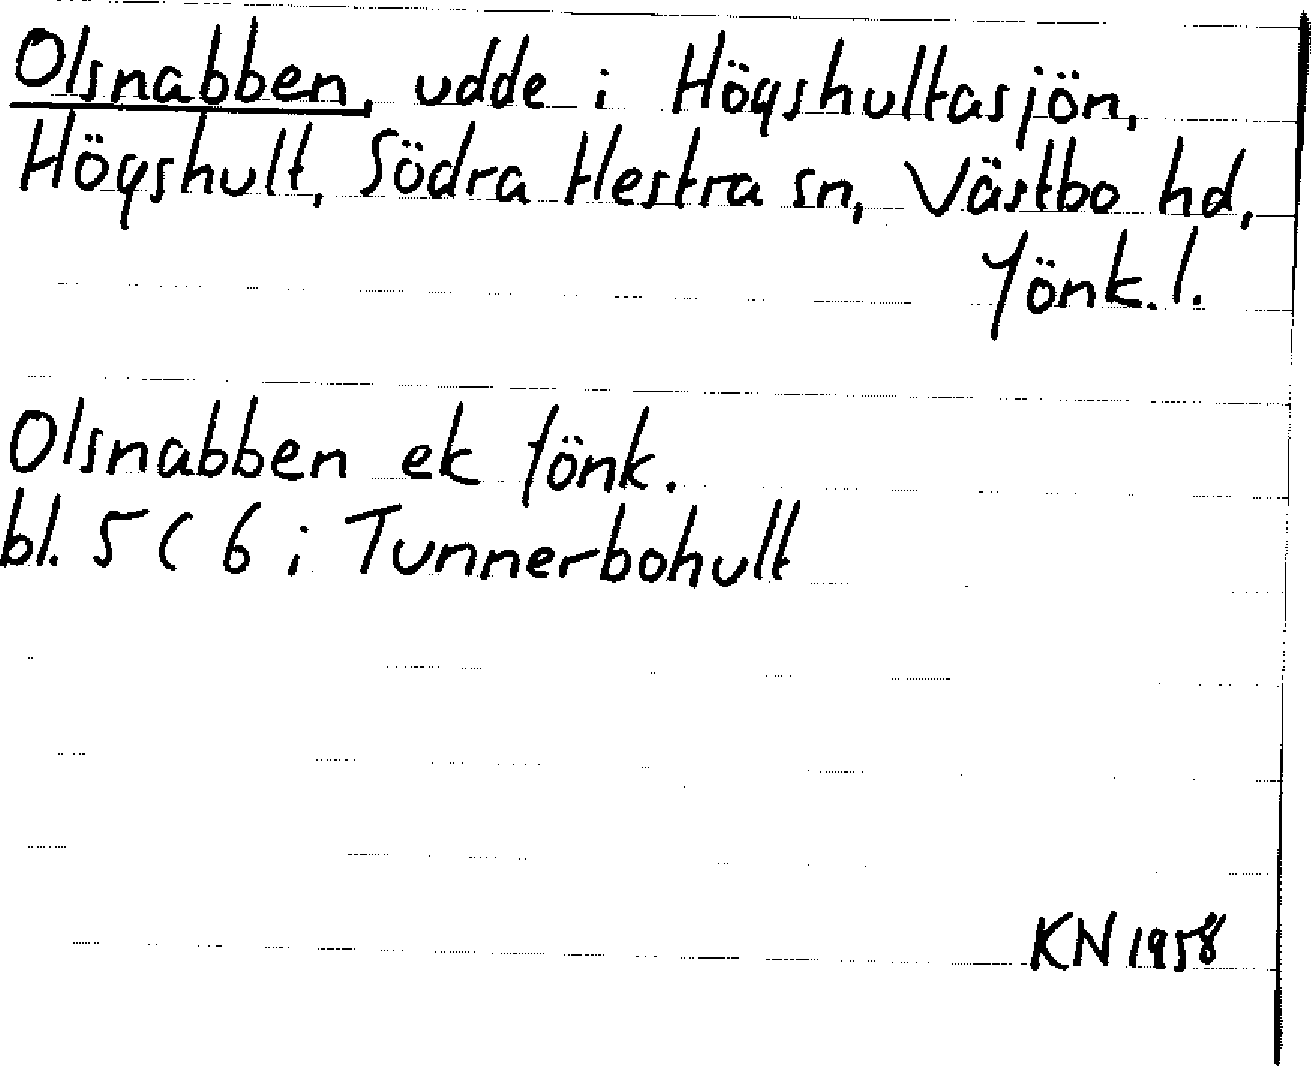 Olsnabben, udde i Högshultasjön,
Högshult, Södra Hestra sn, Västbo hd,
Jönk. l.
Olsnabben ek Jönk.
bl. 5 C 6 i Tunnerbohult
KN 1958